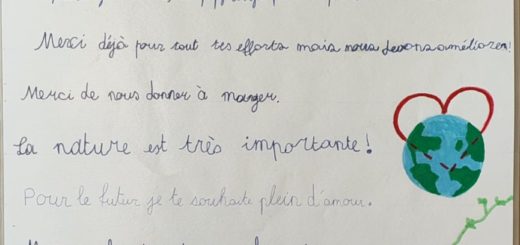 Merci déjà pour tout tes efforts mais nous devons améliorer!
Merci de nous donner à manger.
La nature est très importante!
Pour le futur je te souhaite plein d'amour.